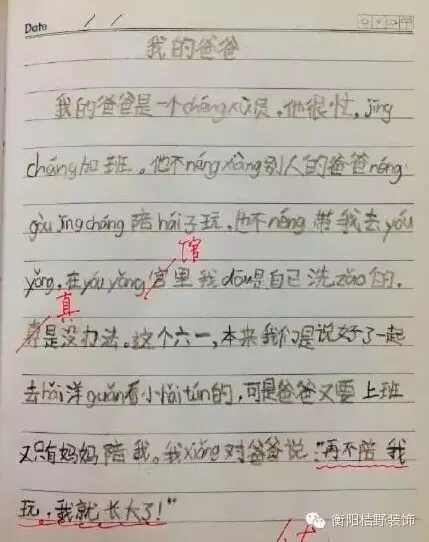 Date
我的爸爸
我的爸爸是一个chéng xù员,他很忙,jīng
cháng加班。他不néng xiàng别人的爸爸néng
gòu jīng cháng 陪hái子玩,也不néng 带我去yóu
馆
yǒng,在yóu yǒng宫里我dōu是自己洗zǎo的,
真
真是没办法。这个六一,本来我们是说好了一起
去hǎi洋guǎn看小hǎi tún的,可是爸爸又要上班
又只有妈妈陪我。我xiǎng对爸爸说:"再不陪我
玩,我就长大了!"
衡阳桔野装饰